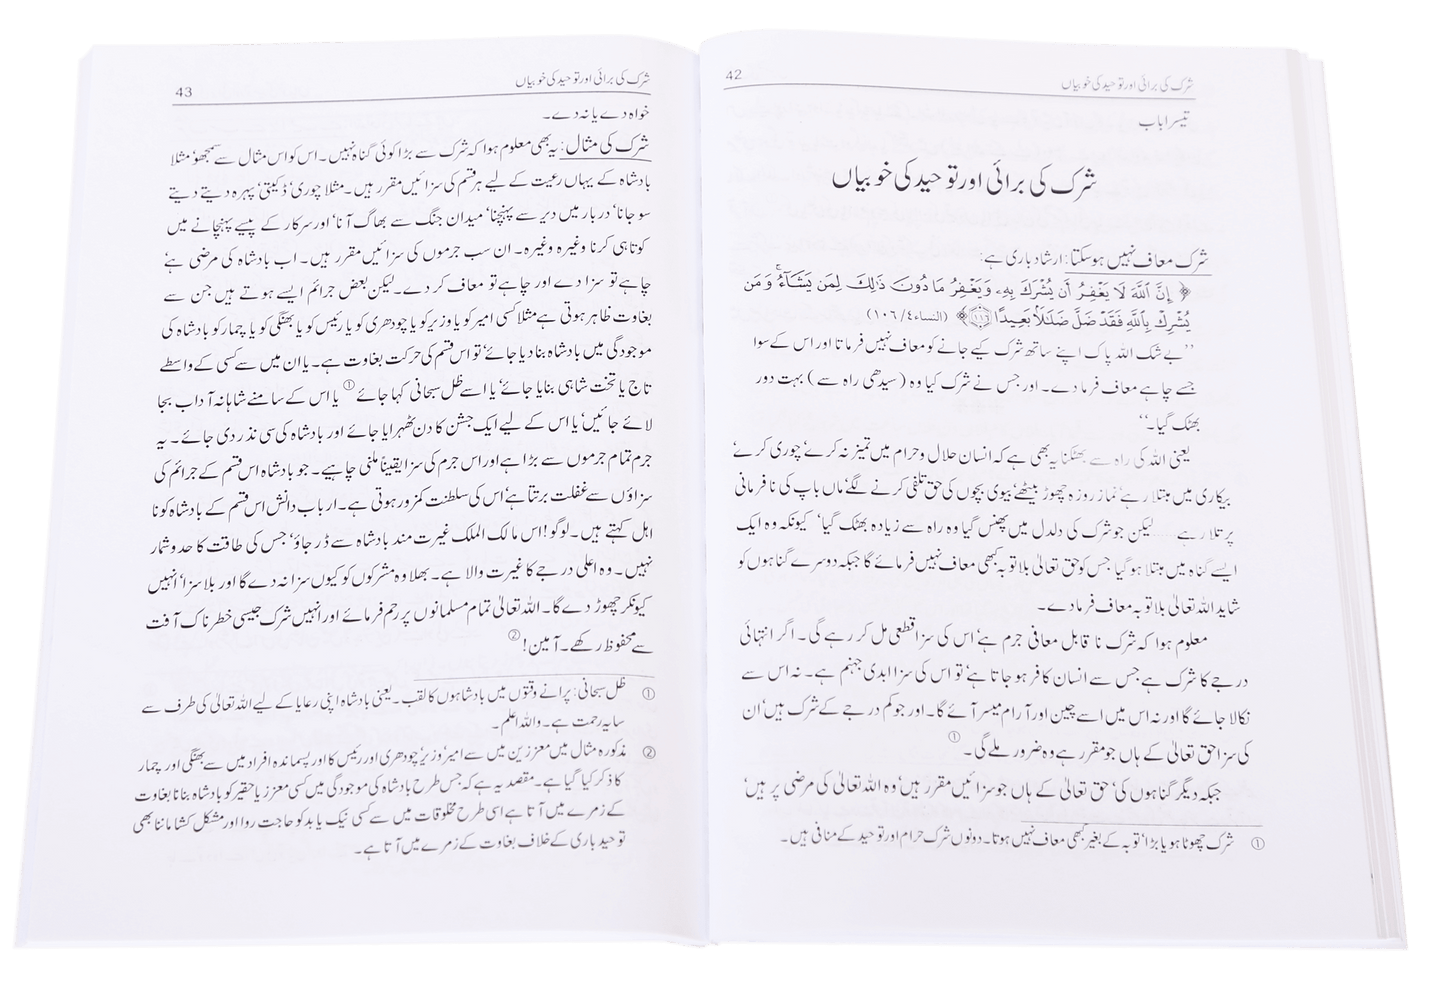 42
شرک کی برائی اور توحید کی خوبیاں
تیسرا باب
شرک کی برائی اور توحید کی خوبیاں
شرک معاف نہیں ہو سکتا: ارشاد باری ہے:
﴿ إِنَّ ٱللَّهَ لَا يَغْفِرُ أَن يُشْرَكَ بِهِۦ وَيَغْفِرُ مَا دُونَ ذَٰلِكَ لِمَن يَشَآءُ ۚ وَمَن
يُشْرِكْ بِٱللَّهِ فَقَدْ ضَلَّ ضَلَٰلَۢا بَعِيدًا ﴿١١٦﴾ ﴾ (النساء٤/ ١٠٦)
’’بے شک اللہ پاک اپنے ساتھ شرک کیے جانے کو معاف نہیں فرماتا اور اس کے سوا
جسے چاہے معاف فرما دے۔ اور جس نے شرک کیا وہ (سیدھی راہ سے) بہت دور
بھٹک گیا۔‘‘
یعنی اللہ کی راہ سے بھٹکنا یہ بھی ہے کہ انسان حلال و حرام میں تمیز نہ کرے‘ چوری کرے‘
بیکاری میں مبتلا رہے‘ نماز روزہ چھوڑ بیٹھے‘ بیوی بچوں کی حق تلفی کرنے لگے‘ ماں باپ کی نافرمانی
پر تلا رہے...... لیکن جو شرک کی دلدل میں پھنس گیا وہ راہ سے زیادہ بھٹک گیا‘ کیونکہ وہ ایک
ایسے گناہ میں مبتلا ہو گیا جس کو حق تعالیٰ بلا توبہ کبھی معاف نہیں فرمائے گا جبکہ دوسرے گناہوں کو
شاید اللہ تعالیٰ بلا توبہ معاف فرما دے۔
معلوم ہوا کہ شرک نا قابل معافی جرم ہے‘ اس کی سزا قطعی مل کر رہے گی۔ اگر انتہائی
درجے کا شرک ہے جس سے انسان کافر ہو جاتا ہے‘ تو اس کی سزا ابدی جہنم ہے۔ نہ اس سے
نکالا جائے گا اور نہ اس میں اسے چین اور آرام میسر آئے گا۔ اور جو کم درجے کے شرک ہیں‘ ان
کی سزا حق تعالیٰ کے ہاں جو مقرر ہے وہ ضرور ملے گی۔ ①
جبکہ دیگر گناہوں کی‘ حق تعالیٰ کے ہاں جو سزائیں مقرر ہیں‘ وہ اللہ تعالیٰ کی مرضی پر ہیں‘
① شرک چھوٹا ہو یا بڑا‘ توبہ کے بغیر کبھی معاف نہیں ہوتا۔ دونوں شرک حرام اور توحید کے منافی ہیں۔
43
شرک کی برائی اور توحید کی خوبیاں
خواہ دے یا نہ دے۔
شرک کی مثال: یہ بھی معلوم ہوا کہ شرک سے بڑا کوئی گناہ نہیں۔ اس کو اس مثال سے سمجھو‘ مثلا
بادشاہ کے یہاں رعیت کے لیے ہر قسم کی سزائیں مقرر ہیں۔ مثلا چوری‘ ڈکیتی‘ پہرہ دیتے دیتے
سو جانا‘ دربار میں دیر سے پہنچنا‘ میدان جنگ سے بھاگ آنا‘ اور سرکار کے پیسے پہنچانے میں
کوتاہی کرنا وغیرہ وغیرہ۔ ان سب جرموں کی سزائیں مقرر ہیں۔ اب بادشاہ کی مرضی ہے‘
چاہے تو سزا دے اور چاہے تو معاف کر دے۔ لیکن بعض جرائم ایسے ہوتے ہیں جن سے
بغاوت ظاہر ہوتی ہے مثلا کسی امیر کو یا وزیر کو یا چودھری کو یا رئیس کو یا بھنگی کو یا چمار کو بادشاہ کی
موجودگی میں بادشاہ بنا دیا جائے‘ تو اس قسم کی حرکت بغاوت ہے۔ یا ان میں سے کسی کے واسطے
تاج یا تخت شاہی بنایا جائے‘ یا اسے ظل سبحانی کہا جائے ① یا اس کے سامنے شاہانہ آداب بجا
لائے جائیں‘ یا اس کے لیے ایک جشن کا دن ٹھہرایا جائے اور بادشاہ کی سی نذر دی جائے۔ یہ
جرم تمام جرموں سے بڑا ہے اور اس جرم کی سزا یقیناً ملنی چاہیے۔ جو بادشاہ اس قسم کے جرائم کی
سزاؤں سے غفلت برتتا ہے‘ اس کی سلطنت کمزور ہوتی ہے۔ ارباب دانش اس قسم کے بادشاہ کو نا
اہل کہتے ہیں۔ لوگو! اس مالک الملک غیرت مند بادشاہ سے ڈر جاؤ‘ جس کی طاقت کا حد و شمار
نہیں۔ وہ اعلی درجے کا غیرت والا ہے۔ بھلا وہ مشرکوں کو کیوں سزا نہ دے گا اور بلا سزا‘ انہیں
کیونکر چھوڑ دے گا۔ اللہ تعالیٰ تمام مسلمانوں پر رحم فرمائے اور انہیں شرک جیسی خطرناک آفت
سے محفوظ رکھے۔ آمین! ②
① ظل سبحانی: پرانے وقتوں میں بادشاہوں کا لقب۔ یعنی بادشاہ اپنی رعایا کے لیے اللہ تعالیٰ کی طرف سے
سایہ رحمت ہے۔ واللہ اعلم۔
② مذکورہ مثال میں معززین میں سے امیر‘ وزیر‘ چودھری اور رئیس کا اور پسماندہ افراد میں سے بھنگی اور چمار
کا ذکر کیا گیا ہے۔ مقصد یہ ہے کہ جس طرح بادشاہ کی موجودگی میں کسی معزز یا حقیر کو بادشاہ بنانا بغاوت
کے زمرے میں آتا ہے اسی طرح مخلوقات میں سے کسی نیک یا بد کو حاجت روا اور مشکل کشا ماننا بھی
توحید باری کے خلاف بغاوت کے زمرے میں آتا ہے۔